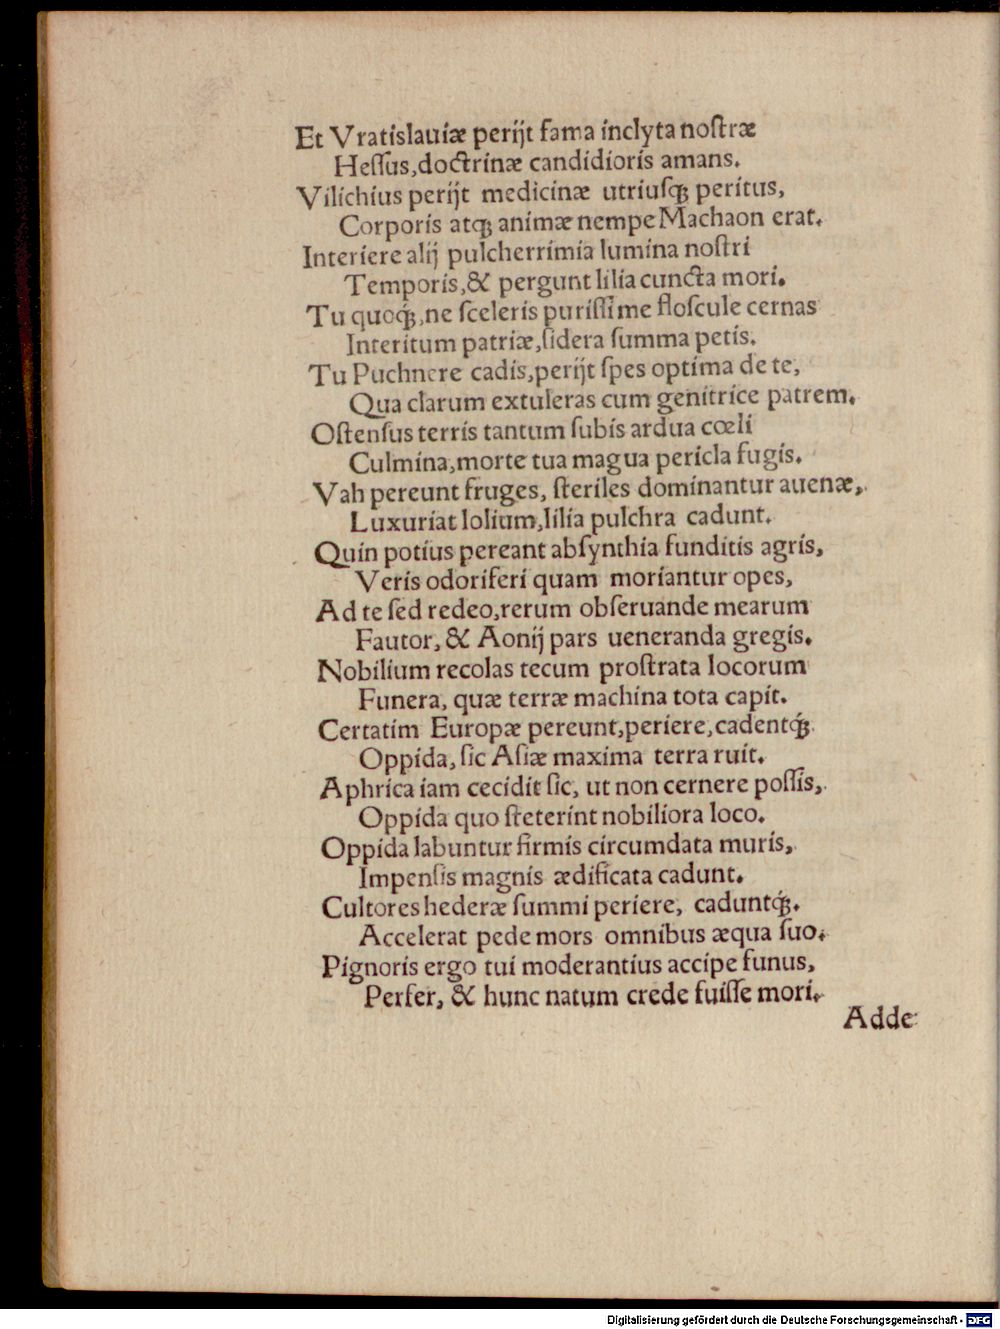 Et Vratislauiæ perijt fama inclyta noſtræ
Heſſus, doctrinæ candidioris amans.
Vilichius perijt medicinæ utriuſqꝫ peritus,
Corporis atqꝫ animæ nempe Machaon erat.
Interiere alij pulcherrimia lumina noſtri
Temporis, & pergunt lilia cuncta mori.
Tu quoqꝫ́, ne ſceleris puriſſime floſcule cernas
Interitum patriæ, ſidera ſumma petis.
Tu Puchnere cadis, perijt ſpes optima de te,
Qua clarum extuleras cum genitrice patrem.
Oſtenſus terris tantum ſubis ardua cœli
Culmina, morte tua magua pericla fugis.
Vah pereunt fruges, ſteriles dominantur auenæ,
Luxuriat lolium, lilia pulchra cadunt.
Quin potius pereant abſynthia funditis agris,
Veris odoriferi quam moriantur opes,
Ad te ſed redeo, rerum obſeruande mearum
Fautor, & Aonij pars ueneranda gregis.
Nobilium recolas tecum proſtrata locorum
Funera, quæ terræ machina tota capit.
Certatim Europæ pereunt, periere, cadentqꝫ́
Oppida, ſic Aſiæ maxima terra ruit.
Aphrica iam cecidit ſic, ut non cernere poſſis,
Oppida quo ſteterint nobiliora loco.
Oppida labuntur firmis circumdata muris,
Impenſis magnis ædificata cadunt.
Cultores hederæ ſummi periere, caduntqꝫ́.
Accelerat pede mors omnibus æqua ſuo.
Pignoris ergo tui moderantius accipe funus,
Perfer, & hunc natum crede fuiſſe mori.
Adde
Digitalisierung gefördert durch die Deutsche Forschungsgemeinschaft - DFG